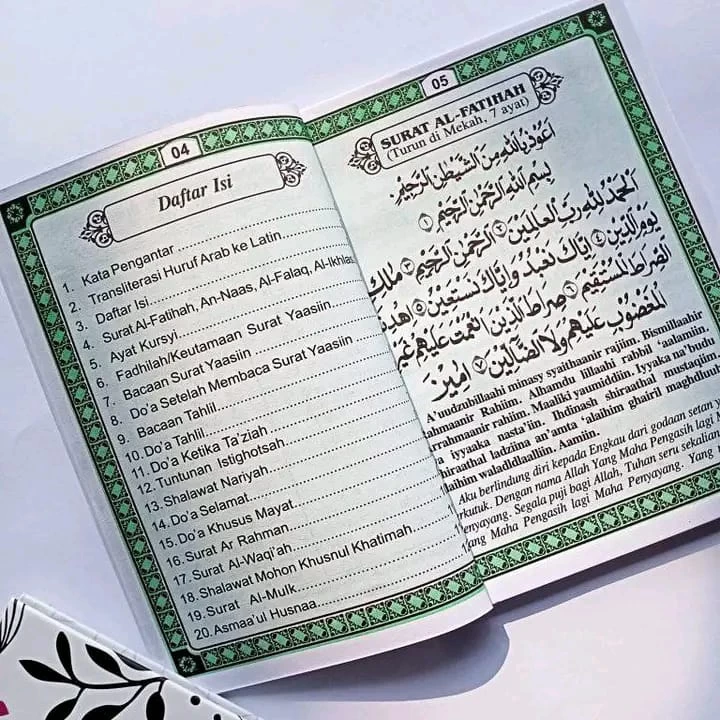 04
Daftar Isi
1. Kata Pengantar
2. Transliterasi Huruf Arab ke Latin
3. Daftar Isi
4. Surat Al-Fatihah, An-Naas, Al-Falaq, Al-Ikhlas
5. Ayat Kursyi
6. Fadhilah/Keutamaan Surat Yaasiin
7. Bacaan Surat Yaasiin
8. Do'a Setelah Membaca Surat Yaasiin
9. Bacaan Tahlil
10. Do'a Tahlil
11. Do'a Ketika Ta'ziah
12. Tuntunan Istighotsah
13. Shalawat Nariyah
14. Do'a Selamat
15. Do'a Khusus Mayat
16. Surat Ar Rahman
17. Surat Al-Waqi'ah
18. Shalawat Mohon Khusnul Khatimah
19. Surat Al-Mulk
20. Asmaa'ul Husnaa
05
SURAT AL-FATIHAH
(Turun di Mekah, 7 ayat)
اَعُوْذُ بِاللّٰهِ مِنَ الشَّيْطٰنِ الرَّجِيْمِ
بِسْمِ اللّٰهِ الرَّحْمٰنِ الرَّحِيْمِ ۝١
اَلْحَمْدُ لِلّٰهِ رَبِّ الْعَالَمِيْنَ ۝٢ اَلرَّحْمٰنِ الرَّحِيْمِ ۝٣ مٰلِكِ
يَوْمِ الدِّيْنِ ۝٤ اِيَّاكَ نَعْبُدُ وَاِيَّاكَ نَسْتَعِيْنُ ۝٥ اِهْدِنَا
الصِّرَاطَ الْمُسْتَقِيْمَ ۝٦ صِرَاطَ الَّذِيْنَ اَنْعَمْتَ عَلَيْهِمْ غَيْرِ
الْمَغْضُوْبِ عَلَيْهِمْ وَلَا الضَّالِّيْنَ ۝٧ اٰمِيْنَ
A'uudzubillaahi minasy syaithaanir rajiim. Bismillaahir
rahmaanir Rahiim. Alhamdu lillaahi rabbil 'aalamiin.
Arrahmaanir rahiim. Maaliki yaumiddiin. Iyyaka na'budu
wa iyyaaka nasta'iin. Ihdinash shiraathal mustaqiima
shiraathal ladziina an'amta 'alaihim ghairil maghdhuub
'alaihim waladldlaalliin. Aamiin.
Aku berlindung diri kepada Engkau dari godaan setan y
terkutuk. Dengan nama Allah Yang Maha Pengasih lagi M
Penyayang. Segala puji bagi Allah, Tuhan seru sekalian
Yang Maha Pengasih lagi Maha Penyayang. Yang